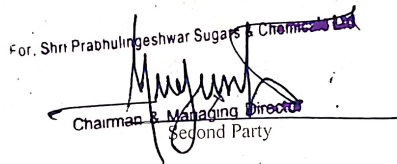 For, Shri Prabhulingeshwar Sugars & Chemicals Ltd
Chairman & Managing Director
Second Party